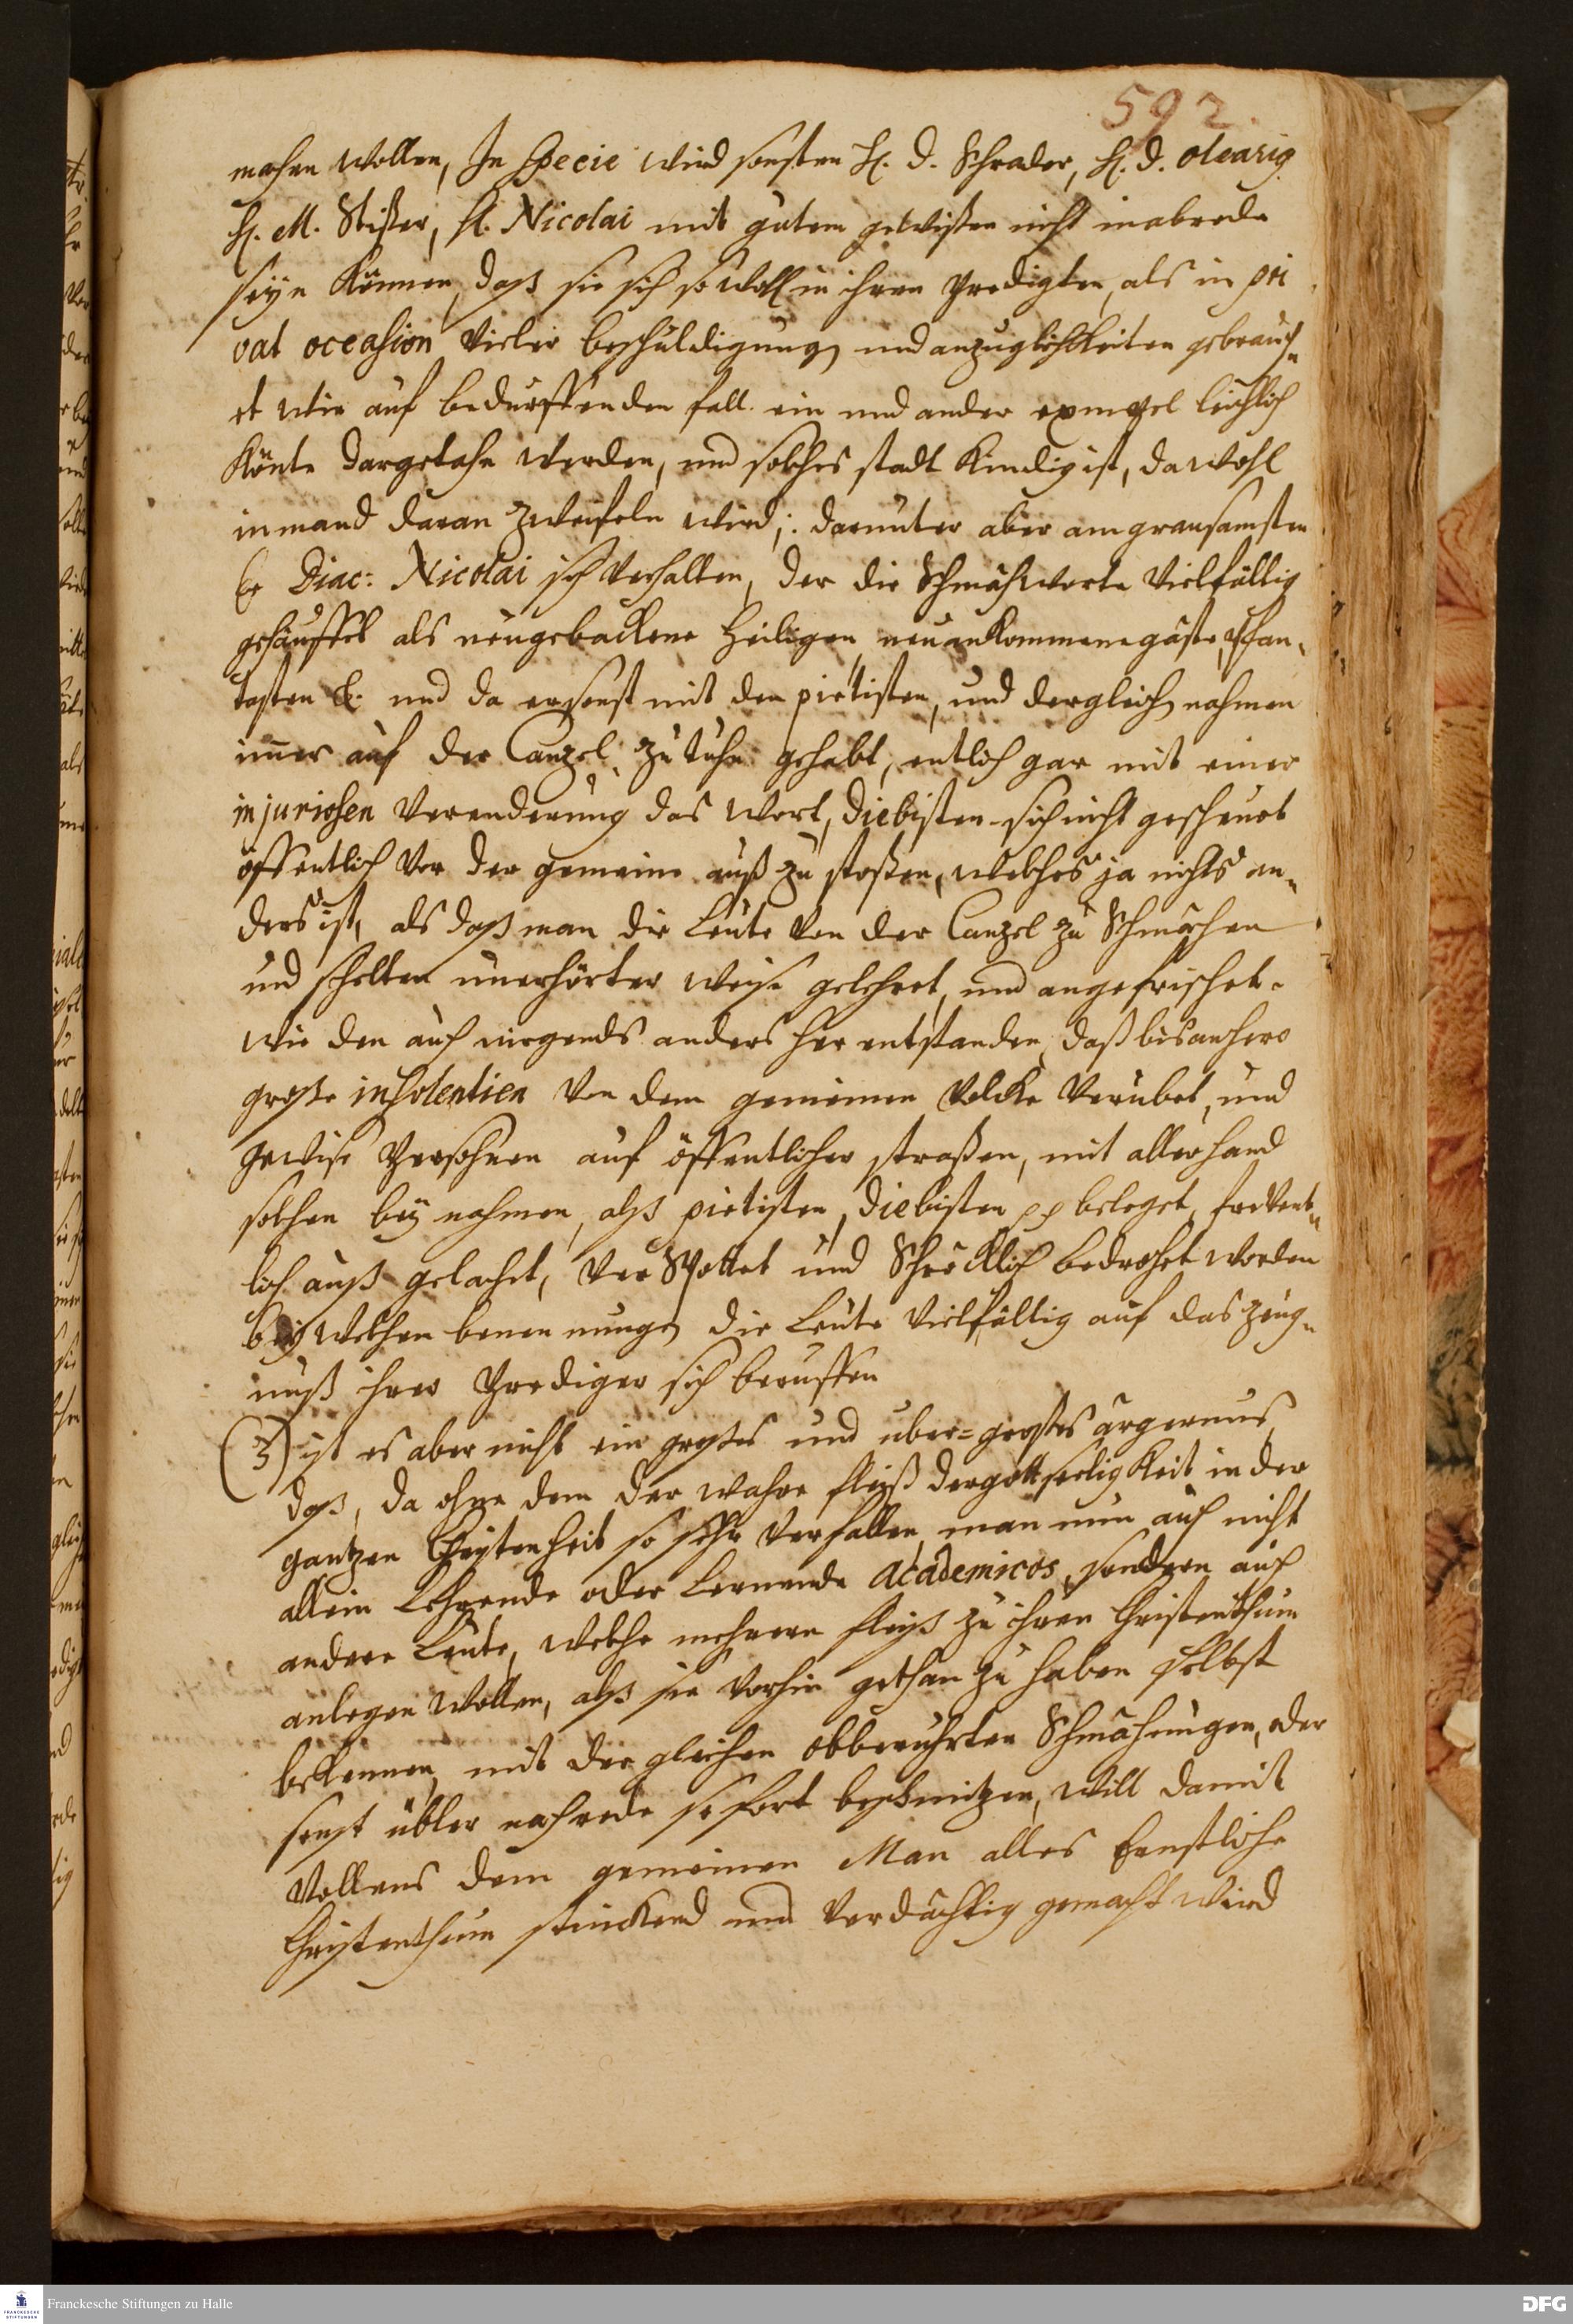 592.
machen wollen, In specie wird sonsten H. D. Schrader, H. D. Olearig
H. M. Stißer, H. Nicolai mit gutem gewißen nicht inabrede
seyn können, daß sie sich so woll in ihren Predigten, als in pri
vat occasion vieler beschuldigung und anzüglichkeiten gebrauch„
et wie auf bedürffenden fall ein und ander exempel leichtlich
könte dargetahn werden, und solches stadt kündig ist, da wohl
niemand daran zweifeln wird; darunter aber am grausamsten
Diac: Nicolai sich verhalten, der die Schmähworte vielfältig
gehäuffet als neugebackene Heiligen, neuankommene gäste, Phan„
tasten &. und da er sonst mit den pietisten, und dergleich nahmen
im̄er auf der Canzel zu tuhn gehabt, entlich gar mit einer
injuriosen verenderung das wort, Diebisten sich nicht gescheuet
öffentlich vor der gemeine auß zu stoßen, welches ja nichts an„
ders ist, als daß man die Leute von der Canzel zu Schmähen
und schelten unerhörter weise gelehret, und angefrischet.
wie den auch nirgends anders her entstanden, daß bisanhero
große insolentien von dem gemeinen Volcke verübet, und
gewise Persohnen auf öffentlicher straßen, mit allerhand
solchen bey nahmen, alß pietisten, Diebisten pp beleget, frevent„
lich auß gelachet, ver Spottet und Schröcklich bedrohet worden
bey welchen benennungen die Leute vielfältig auf das zeug„
nuß ihrer Prediger sich beruffen
(3) ist es aber nicht ein großes und uber=großes ärgernus,
daß, da ohne dem der wahre fleiß der gottseeligkeit in der
gantzen Christenheit so sehr verfallen, man nun auch nicht
allein Lehrende oder Lernende Academicos, sondern auch
andere Leute, welche mehreren fleiß zu ihren Christenthum
anlegen wollen, alß sie vorhin gethan zu haben selbst
bekennen, mit der gleichen obberührten Schmähungen, oder
sonst übler nachrede so fort beschmitzen, will damit
vollens dem gemeinen Man alles Ernstliche
Christenthum stinckend und verdächtig gemacht wird
Franckesche Stiftungen zu Halle
DFG